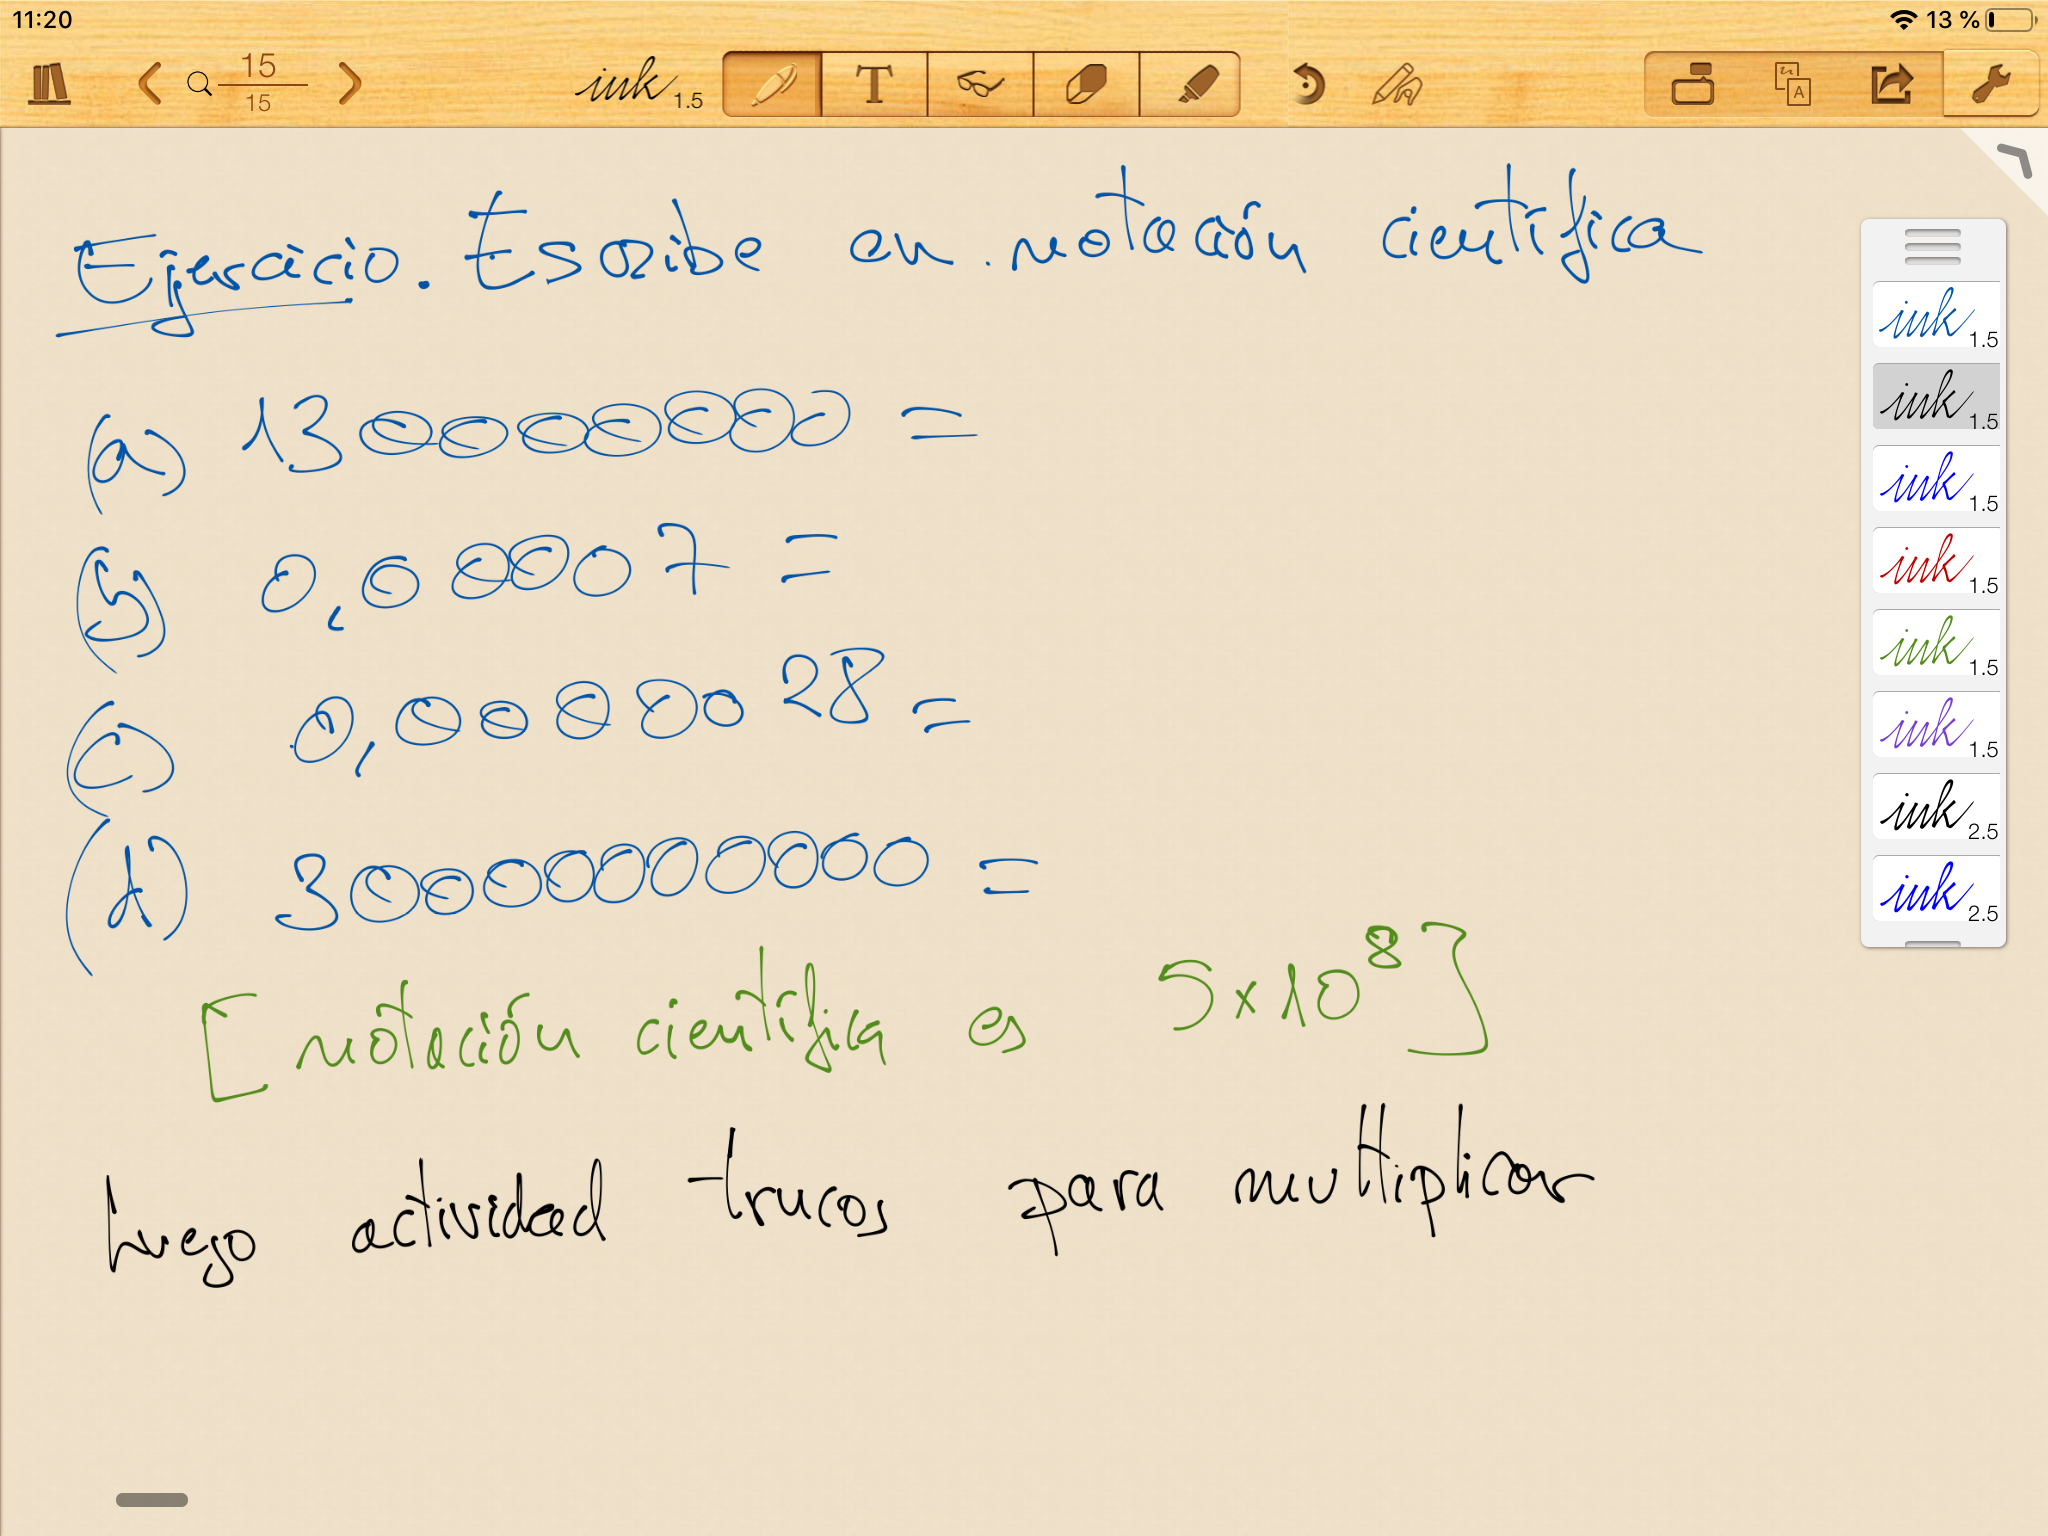 11:20
13 %
15
15
ink 1.5
T
A
Ejercicio. Escribe en notación científica
(a) 130000000 =
(b) 0,00007 =
(c) 0,0000028 =
(d) 30000000000 =
[notación científica es 5x10⁸]
Luego actividad trucos para multiplicar
ink 1.5
ink 1.5
ink 1.5
ink 1.5
ink 1.5
ink 1.5
ink 2.5
ink 2.5